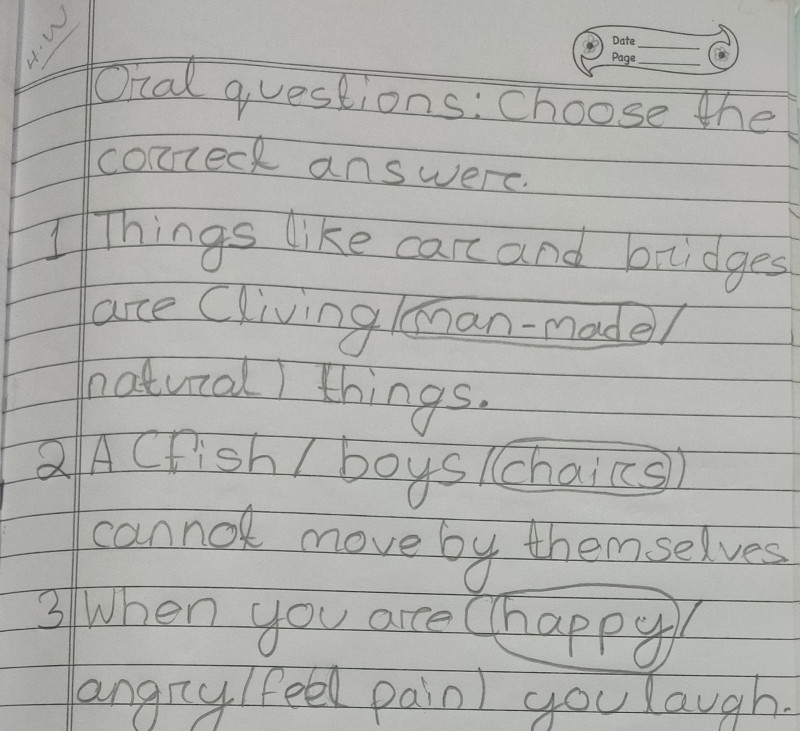 H.W
Date
Page
Oral questions: Choose the
correct answer.
1 Things like car and bridges
are (living/man-made/
natural) things.
2 A (fish/boys/(chairs)
cannot move by themselves
3 When you are (happy/
angry/feel pain) you laugh.